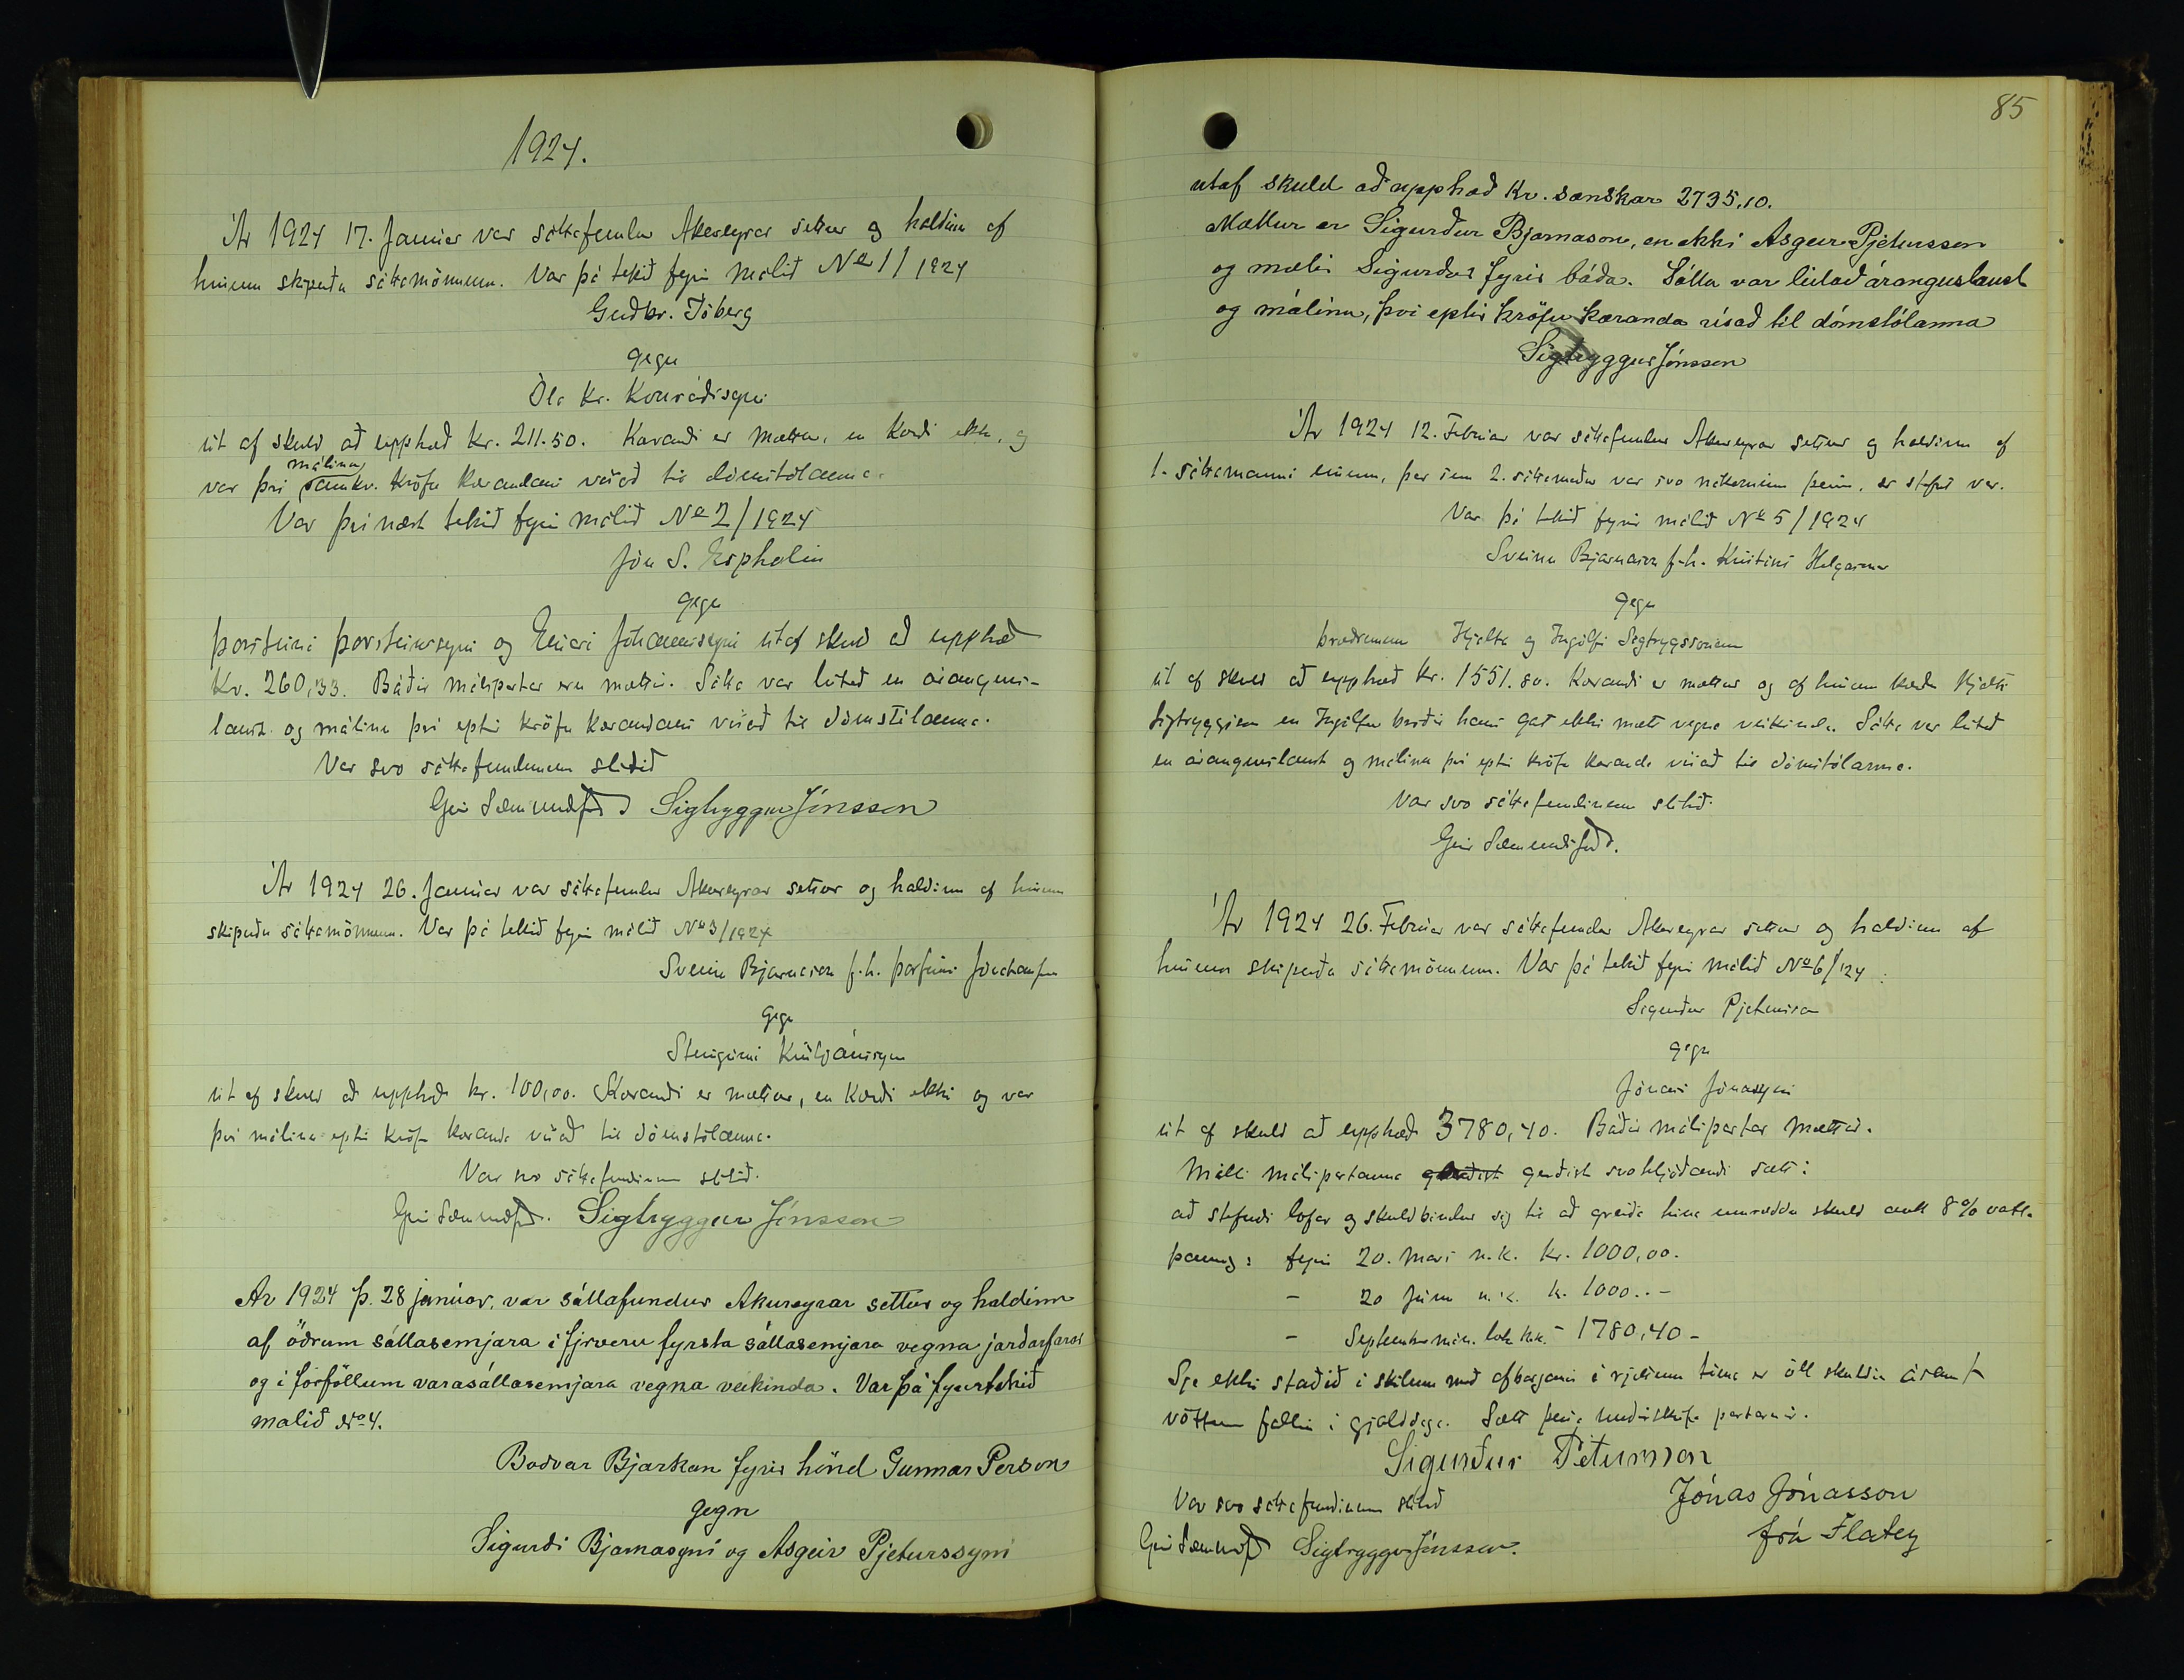 1924.
Ár 1924 17. Januar var sáttafundur Akureyrar settur og haldinn af
hinum skipuðu sáttamönnum. Var þá tekið fyrir málið No 1/1924
Guðbr. Ísberg
gegn
Óla Kr. Konráðssyni
út af skuld að upphæð kr. 211.50. Kærandi er mættur, en kærði ekki, og
var því málinu samkv. kröfu kærandans vísað til dómstólanna.
Var því næst tekið fyrir málið No 2/1924
Jón S. Espholin
gegn
Þorsteini Þorsteinssyni og Einari Jóhannssyni útaf skuld að upphæð
Kr. 260,33. Báðir málspartar eru mættir. Sátta var leitað en árangurs-
laust og málinu því eptir kröfu kærandans vísað til dómstólanna.
Var svo sáttafundinum slitið
Geir Sæmundss Sigtryggur Jónsson
Ár 1924 26. Januar var sáttafundur Akureyrar settur og haldinn af hinum
skipuðu sáttamönnum. Var þá tekið fyrir málið No 3/1924
Sveinn Bjarnason f.h.
gegn
Steingrími Kristjánssyni
út af skuld að upphæð kr. 100,00. Kærandi er mættur, en kærði ekki og var
því málinu eptir kröfu kæranda vísað til dómstólanna.
Var svo sáttafundinum slitið.
Geir Sæmundss. Sigtryggur Jónsson
Ár 1924 þ. 28 janúar, var sáttafundur Akureyrar settur og haldinn
af öðrum sáttasemjara í fjrveru fyrsta sáttasemjara vegna jarðarfarar
og í forföllum varasáttasemjara vegna veikinda. Var þá fyrirtekið
malið No 4.
Bodvar Bjarkan fyrir hönd Gunnar Person
gegn
Sigurði Bjarnasyni og Asgeir Pjeturssyni
85
utaf skuld að upphæð Kr. sænskar 2735,10.
Mættur er Sigurður Bjarnason, en ekki Asgeir Pjetursson
og mætir Sigurður fyrir báða. Sátta var leitað árangurslaust
og málinu, því eptir kröfu kæranda vísað til dómstólanna
Sigtryggur Jónsson
Ár 1924 12. Februar var sáttafundur Akureyrar settur og haldinn af
1. sáttamanni einum, þar sem 2. sáttamaður var svo nákominn þeim, er stefnt var.
Var þá tekið fyrir málið No 5/1924
Sveinn Bjarnason f.h. Kristins Helgasonar
gegn
bræðrunum Hjalta og Ingólfi Sigtryggssonum
út af skuld að upphæð kr. 1551.80. Kærandi er mættur og af hinum kærðu Hjalti
Sigtryggsson en Ingólfur bróðir hans gat ekki mætt vegna veikinda. Sátta var leitað
en árangurslaust og málinu því eptir kröfu kæranda vísað til dómstólanna.
Var svo sáttafundinum slitið.
Geir Sæmundsson.
Ár 1924 26. Februar var sáttafundur Akureyrar settur og haldinn af
hinum skipuðu sáttamönnum. Var þá tekið fyrir málið No 6/'24:
Sigurður Pjetursson
gegn
Jónasi Jónassyni
út af skuld að upphæð 3780,40. Báðir málspartar mættir.
Milli málspartanna gerðist svohljóðandi sátt:
að stefndi lofar og skuldbindur sig til að greiða hina umræddu skuld auk 8% vaxta
þannig: fyrir 20. mars n.k. kr. 1000,00.
- 20 Júni n.k. kr. 1000..-
- September mán. lok n.k. - 1780,40 -
Sje ekki staðið í skilum með afborganir á rjettum tíma er öll skuldin ásamt
vöxtum fallin í gjalddaga. Sátt þessa undirskrifa partarnir.
Sigurður Pétursson
Jónas Jónasson
frá Flatey
Var svo sáttafundinum slitið
Geir Sæmundss Sigtryggur Jónsson.